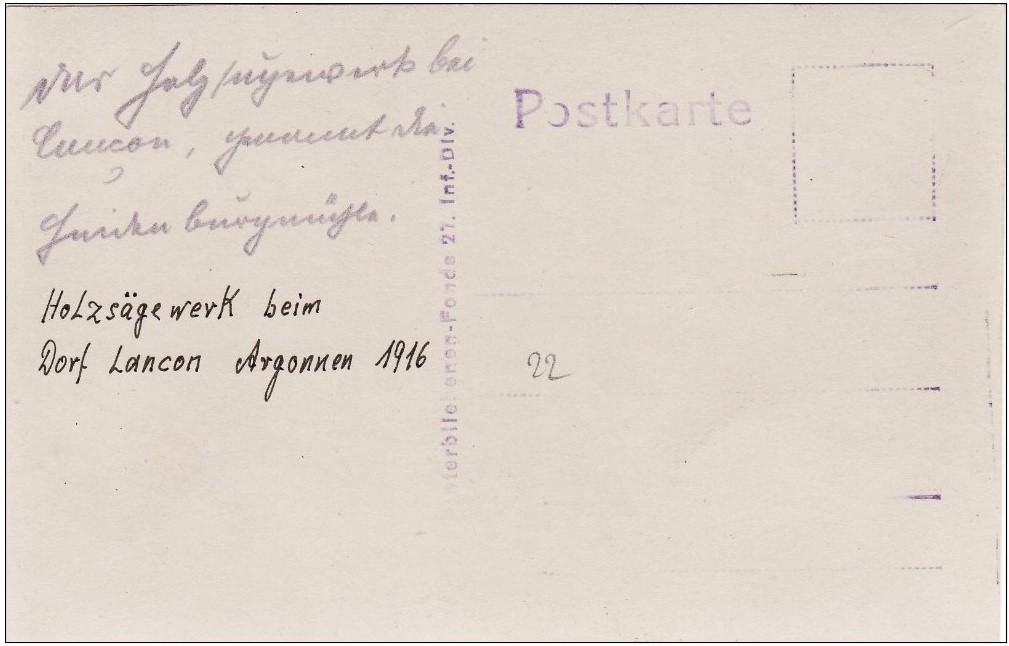 Das Holzsägewerk bei
Lançon, genannt die
Hindenburgmühle.
Holzsägewerk beim
Dorf Lancon Argonnen 1916
terbliebenen-Fonds 27. Inf.-Div.
Postkarte
22